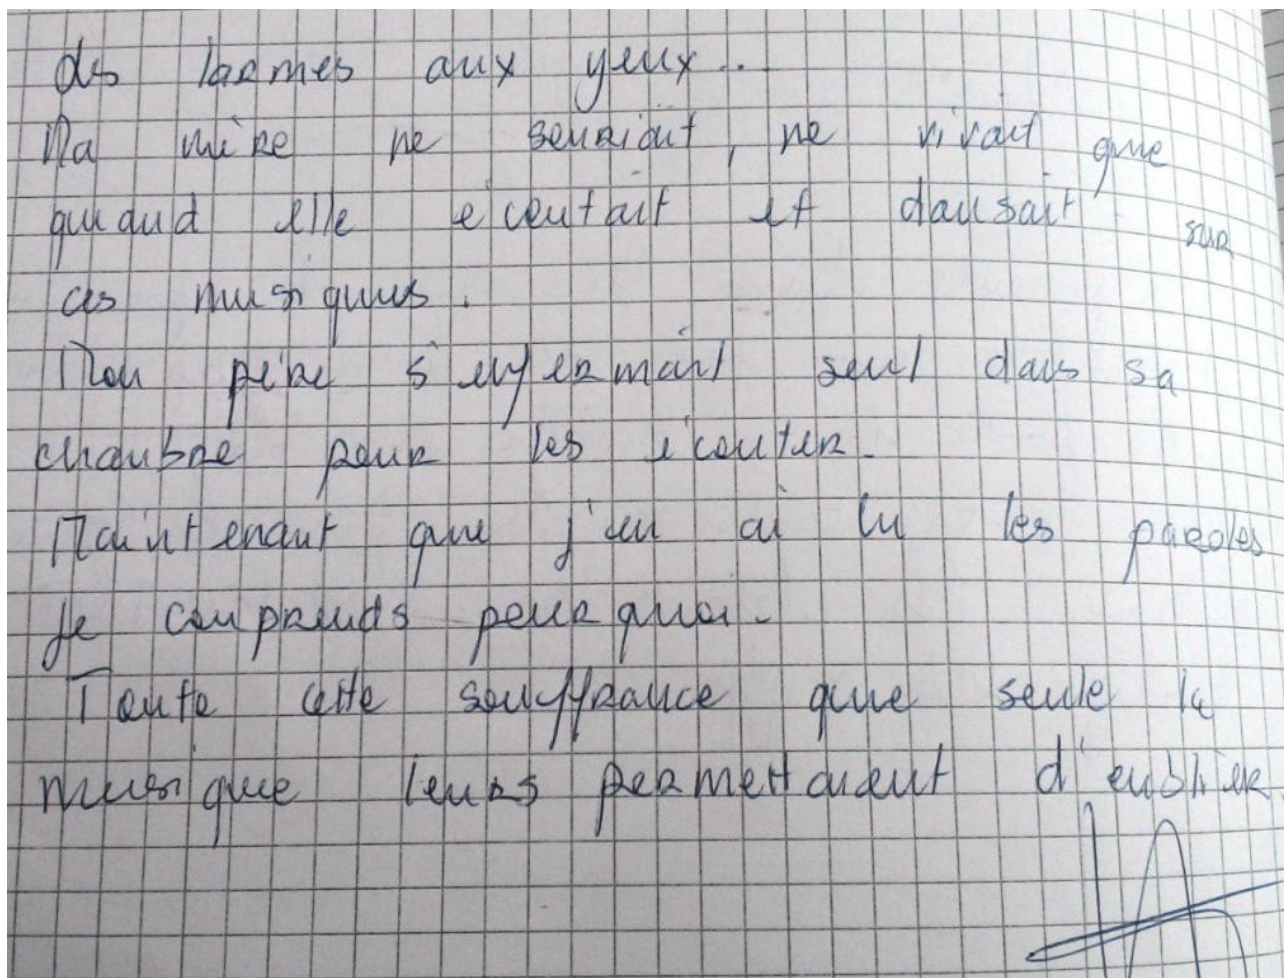 des larmes aux yeux..
Ma mère ne souriait, ne vivait que
quand elle écoutait et dansait sur
ces musiques.
Mon père s'enfermait seul dans sa
chambre pour les écouter.
Maintenant que j'en ai lu les paroles
je comprends pourquoi.
Toute cette souffrance que seule la
musique leurs permettaient d'oublier.